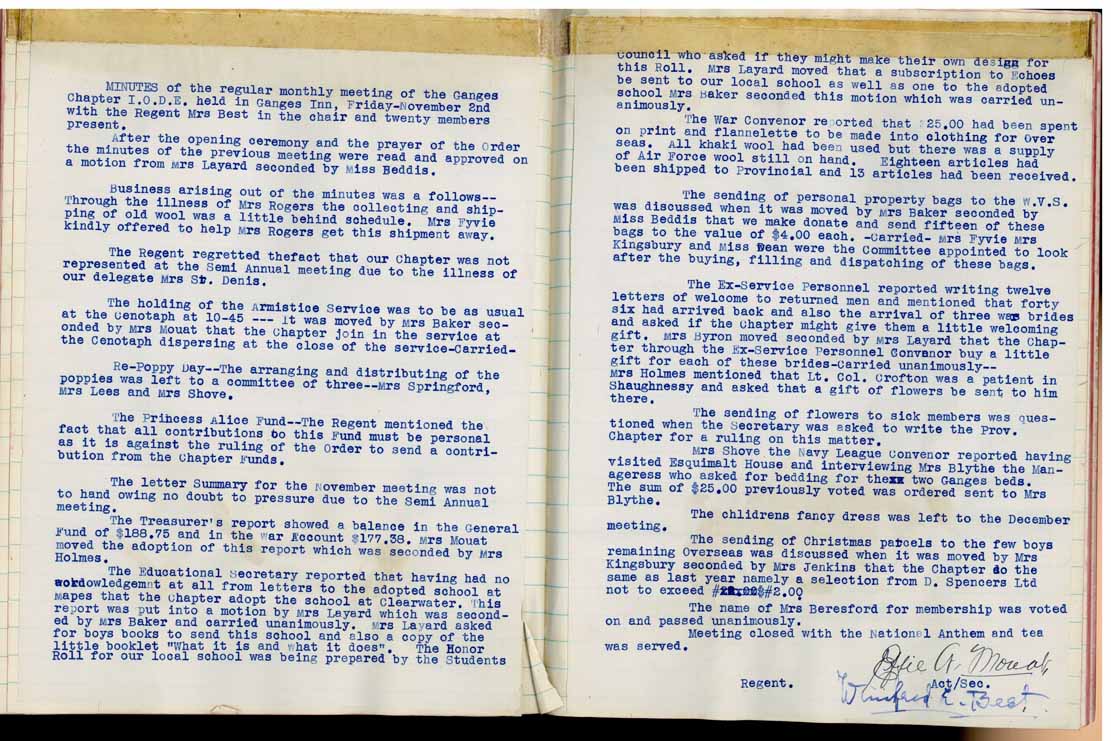 MINUTES of the regular monthly meeting of the Ganges
Chapter I.O.D.E. held in Ganges Inn, Friday-November 2nd
with the Regent Mrs Best in the chair and twenty members
present.
After the opening ceremony and the prayer of the Order
the minutes of the previous meeting were read and approved on
a motion from Mrs Layard seconded by Miss Beddis.
Business arising out of the minutes was a follows--
Through the illness of Mrs Rogers the collecting and ship-
ping of old wool was a little behind schedule. Mrs Fyvie
kindly offered to help Mrs Rogers get this shipment away.
The Regent regretted thefact that our Chapter was not
represented at the Semi Annual meeting due to the illness of
our delegate Mrs St. Denis.
The holding of the Armistice Service was to be as usual
at the Cenotaph at 10-45 --- It was moved by Mrs Baker sec-
onded by Mrs Mouat that the Chapter join in the service at
the Cenotaph dispersing at the close of the service-Carried-
Re-Poppy Day--The arranging and distributing of the
poppies was left to a committee of three--Mrs Springford,
Mrs Lees and Mrs Shove.
The Princess Alice Fund--The Regent mentioned the
fact that all contributions to this Fund must be personal
as it is against the ruling of the Order to send a contri-
bution from the Chapter Funds.
The letter Summary for the November meeting was not
to hand owing no doubt to pressure due to the Semi Annual
meeting.
The Treasurer's report showed a balance in the General
Fund of $188.75 and in the War Account $177.38. Mrs Mouat
moved the adoption of this report which was seconded by Mrs
Holmes.
The Educational Secretary reported that having had no
acknowledgemnt at all from letters to the adopted school at
Mapes that the Chapter adopt the school at Clearwater. This
report was put into a motion by Mrs Layard which was second-
ed by Mrs Baker and carried unanimously. Mrs Layard asked
for boys books to send this school and also a copy of the
little booklet "What it is and what it does". The Honor
Roll for our local school was being prepared by the Students
Council who asked if they might make their own design for
this Roll. Mrs Layard moved that a subscription to Echoes
be sent to our local school as well as one to the adopted
school Mrs Baker seconded this motion which was carried un-
animously.
The War Convenor reported that $25.00 had been spent
on print and flannelette to be made into clothing for Over
seas. All khaki wool had been used but there was a supply
of Air Force wool still on hand. Eighteen articles had
been shipped to Provincial and 13 articles had been received.
The sending of personal property bags to the W.V.S.
was discussed when it was moved by Mrs Baker seconded by
Miss Beddis that we make donate and send fifteen of these
bags to the value of $4.00 each. -Carried- Mrs Fyvie Mrs
Kingsbury and Miss Dean were the Committee appointed to look
after the buying, filling and dispatching of these bags.
The Ex-Service Personnel reported writing twelve
letters of welcome to returned men and mentioned that forty
six had arrived back and also the arrival of three war brides
and asked if the Chapter might give them a little welcoming
gift. Mrs Byron moved seconded by Mrs Layard that the Chap-
ter through the Ex-Service Personnel Convenor buy a little
gift for each of these brides-Carried unanimously--
Mrs Holmes mentioned that Lt. Col. Crofton was a patient in
Shaughnessy and asked that a gift of flowers be sent to him
there.
The sending of flowers to sick members was ques-
tioned when the Secretary was asked to write the Prov.
Chapter for a ruling on this matter.
Mrs Shove the Navy League Convenor reported having
visited Esquimalt House and interviewing Mrs Blythe the Man-
ageress who asked for bedding for thexx two Ganges beds.
The sum of $25.00 previously voted was ordered sent to Mrs
Blythe.
The chlidrens fancy dress was left to the December
meeting.
The sending of Christmas parcels to the few boys
remaining Overseas was discussed when it was moved by Mrs
Kingsbury seconded by Mrs Jenkins that the Chapter do the
same as last year namely a selection from D. Spencers Ltd
not to exceed $2.00
The name of Mrs Beresford for membership was voted
on and passed unanimously.
Meeting closed with the National Anthem and tea
was served.
A. Mouat,
Regent. Act/Sec.
Winifred E. Best.